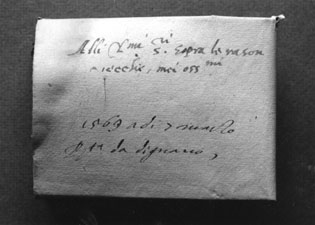 Alli Cl.mi S.ri sopra le rason
vecchie, mei oss.mi
1569 adi 7 marzo
P. ta da dignano,